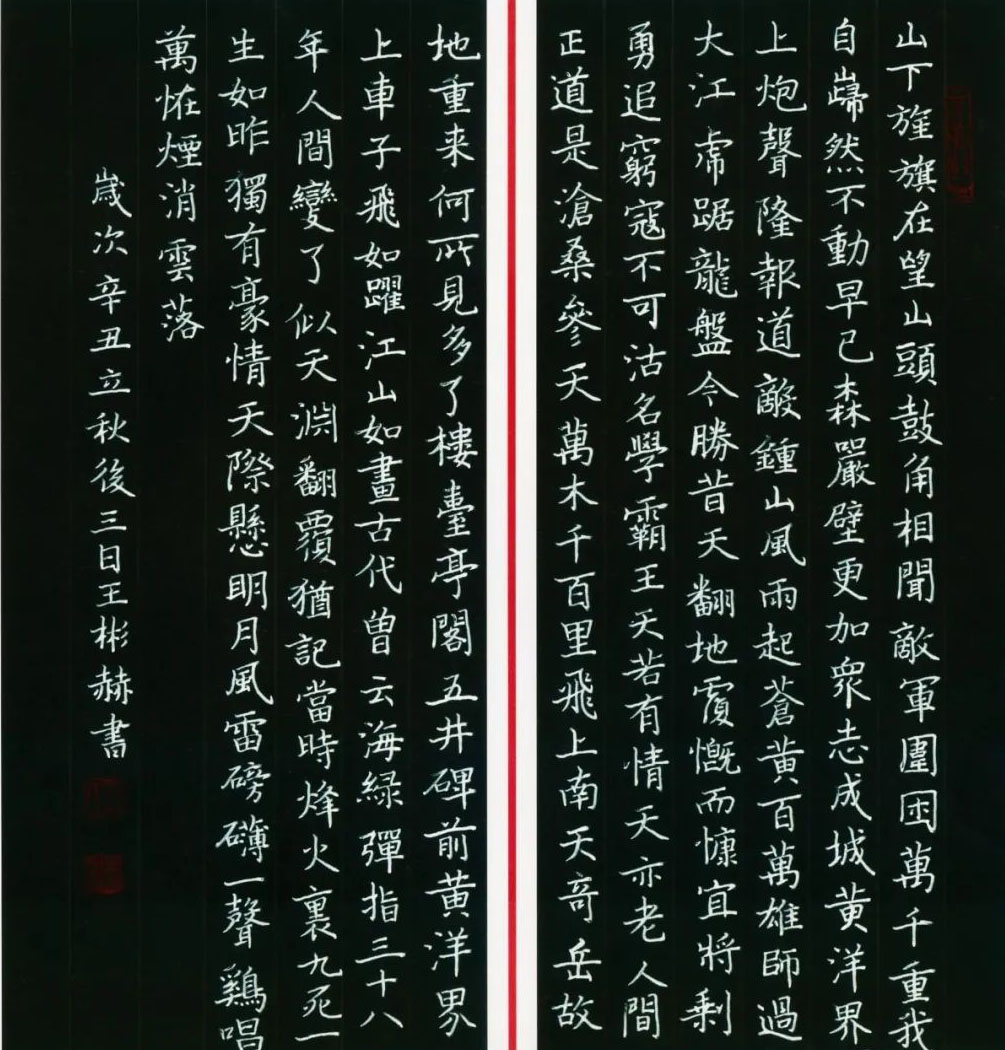 山下旌旗在望山頭鼓角相聞敵軍圍困萬千重我
自巋然不動早已森嚴壁更加衆志成城黄洋界
上炮聲隆報道敵鍾山風雨起蒼黄百萬雄師過
大江虎踞龍盤今勝昔天翻地覆慨而慷宜將剩
勇追窮寇不可沽名學霸王天若有情天亦老人間
正道是滄桑參天萬木千百里飛上南天奇岳故
地重来何所見多了樓臺亭閣五井碑前黄洋界
上車子飛如躍江山如畫古代曾云海緑彈指三十八
年人間變了似天淵翻覆猶記當時烽火裏九死一
生如昨獨有豪情天際懸明月風雷磅礴一聲鷄唱
萬怪煙消雲落
歲次辛丑立秋後三日王彬赫書